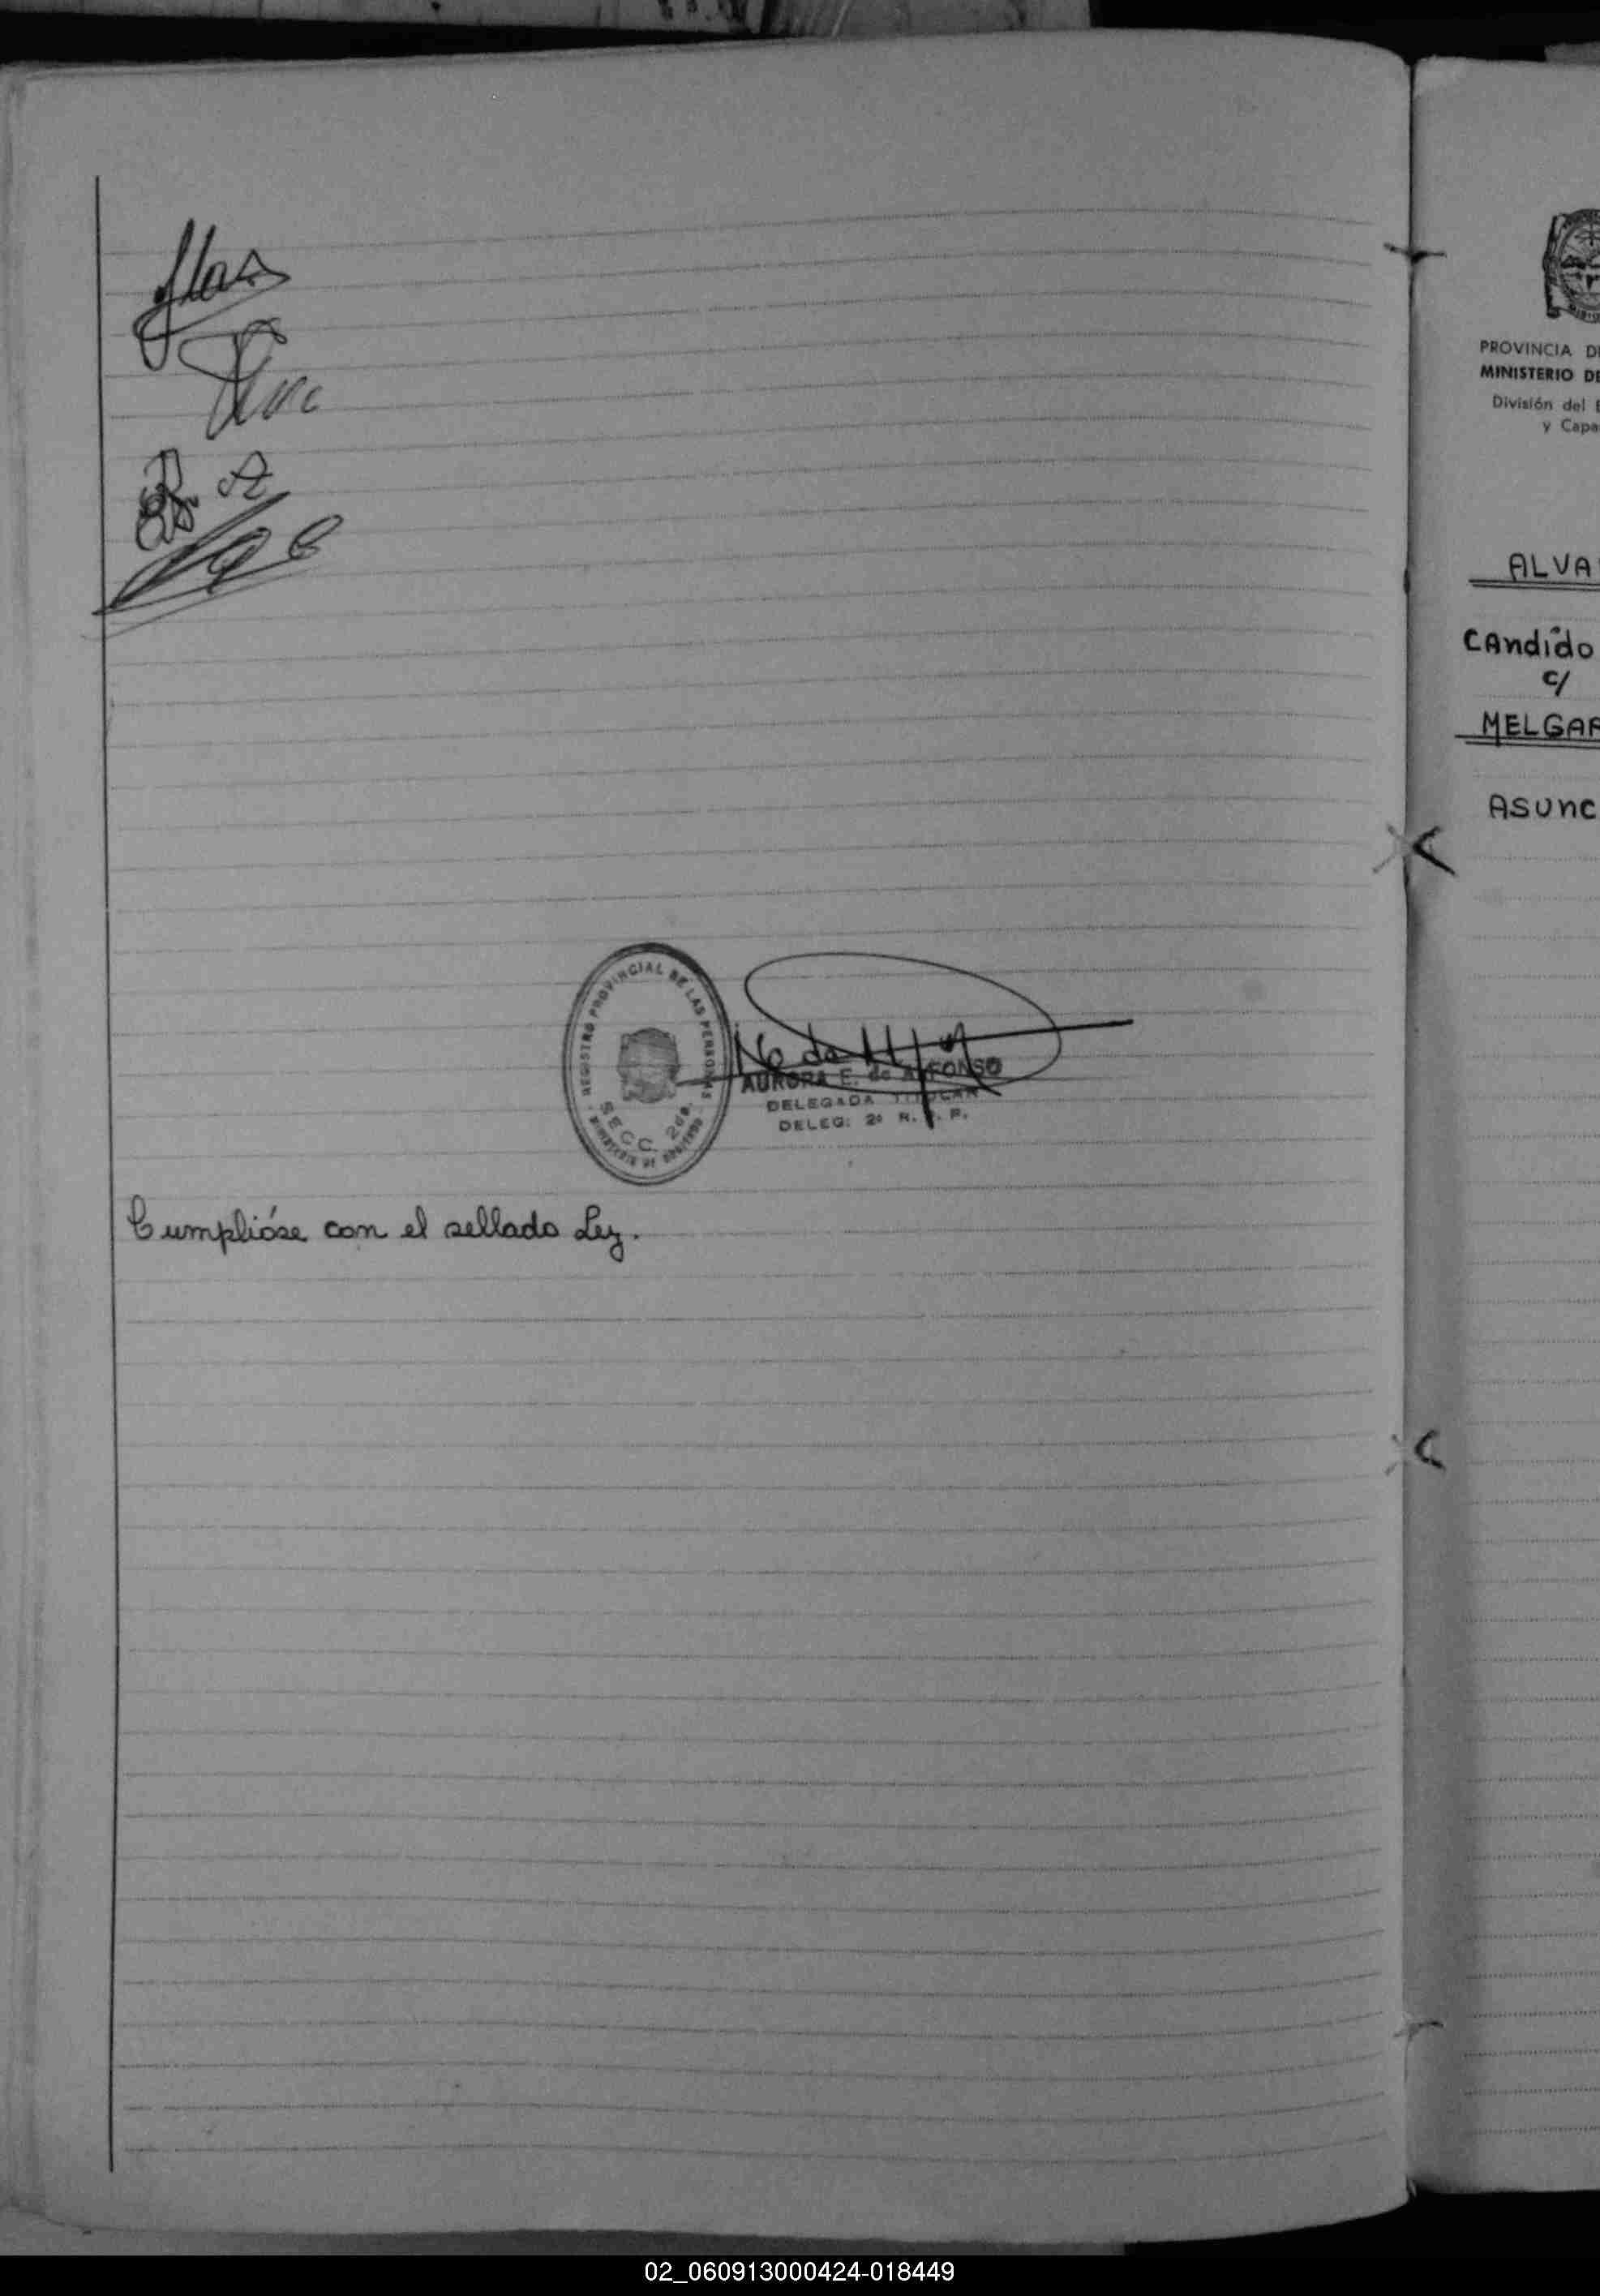 REGISTRO PROVINCIAL DE LAS PERSONAS
SECC. 2da.
MINISTERIO DE GOBIERNO
AURORA E. de ALFONSO
DELEGADA TITULAR
DELEG: 2a R. P.
Cumplióse con el sellado Ley.
PROVINCIA DE
MINISTERIO DE
División del
y Capa
ALVA
CAndido
c/
MELGAR
ASUNC
02_060913000424-018449